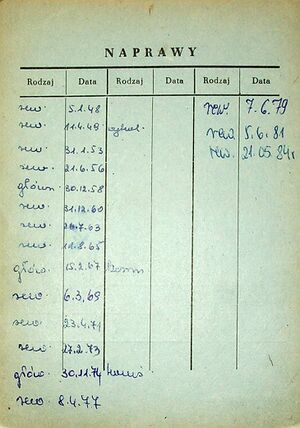 NAPRAWY
Rodzaj Data Rodzaj Data Rodzaj Data
rew. 5.1.48
rew. 11.4.49
rew. 31.1.53
rew. 21.6.56
główn. 30.12.58
rew. 31.12.60
rew. 7.63
rew. 8.65
główn. 15.2.67
rew. 6.3,69
rew. 23.4.71
rew. 17.2.73
główn. 30.11.74
rew. 8.4.77
rew. 7.6.79
rew. 5.6.81
rew. 21.05.84r.